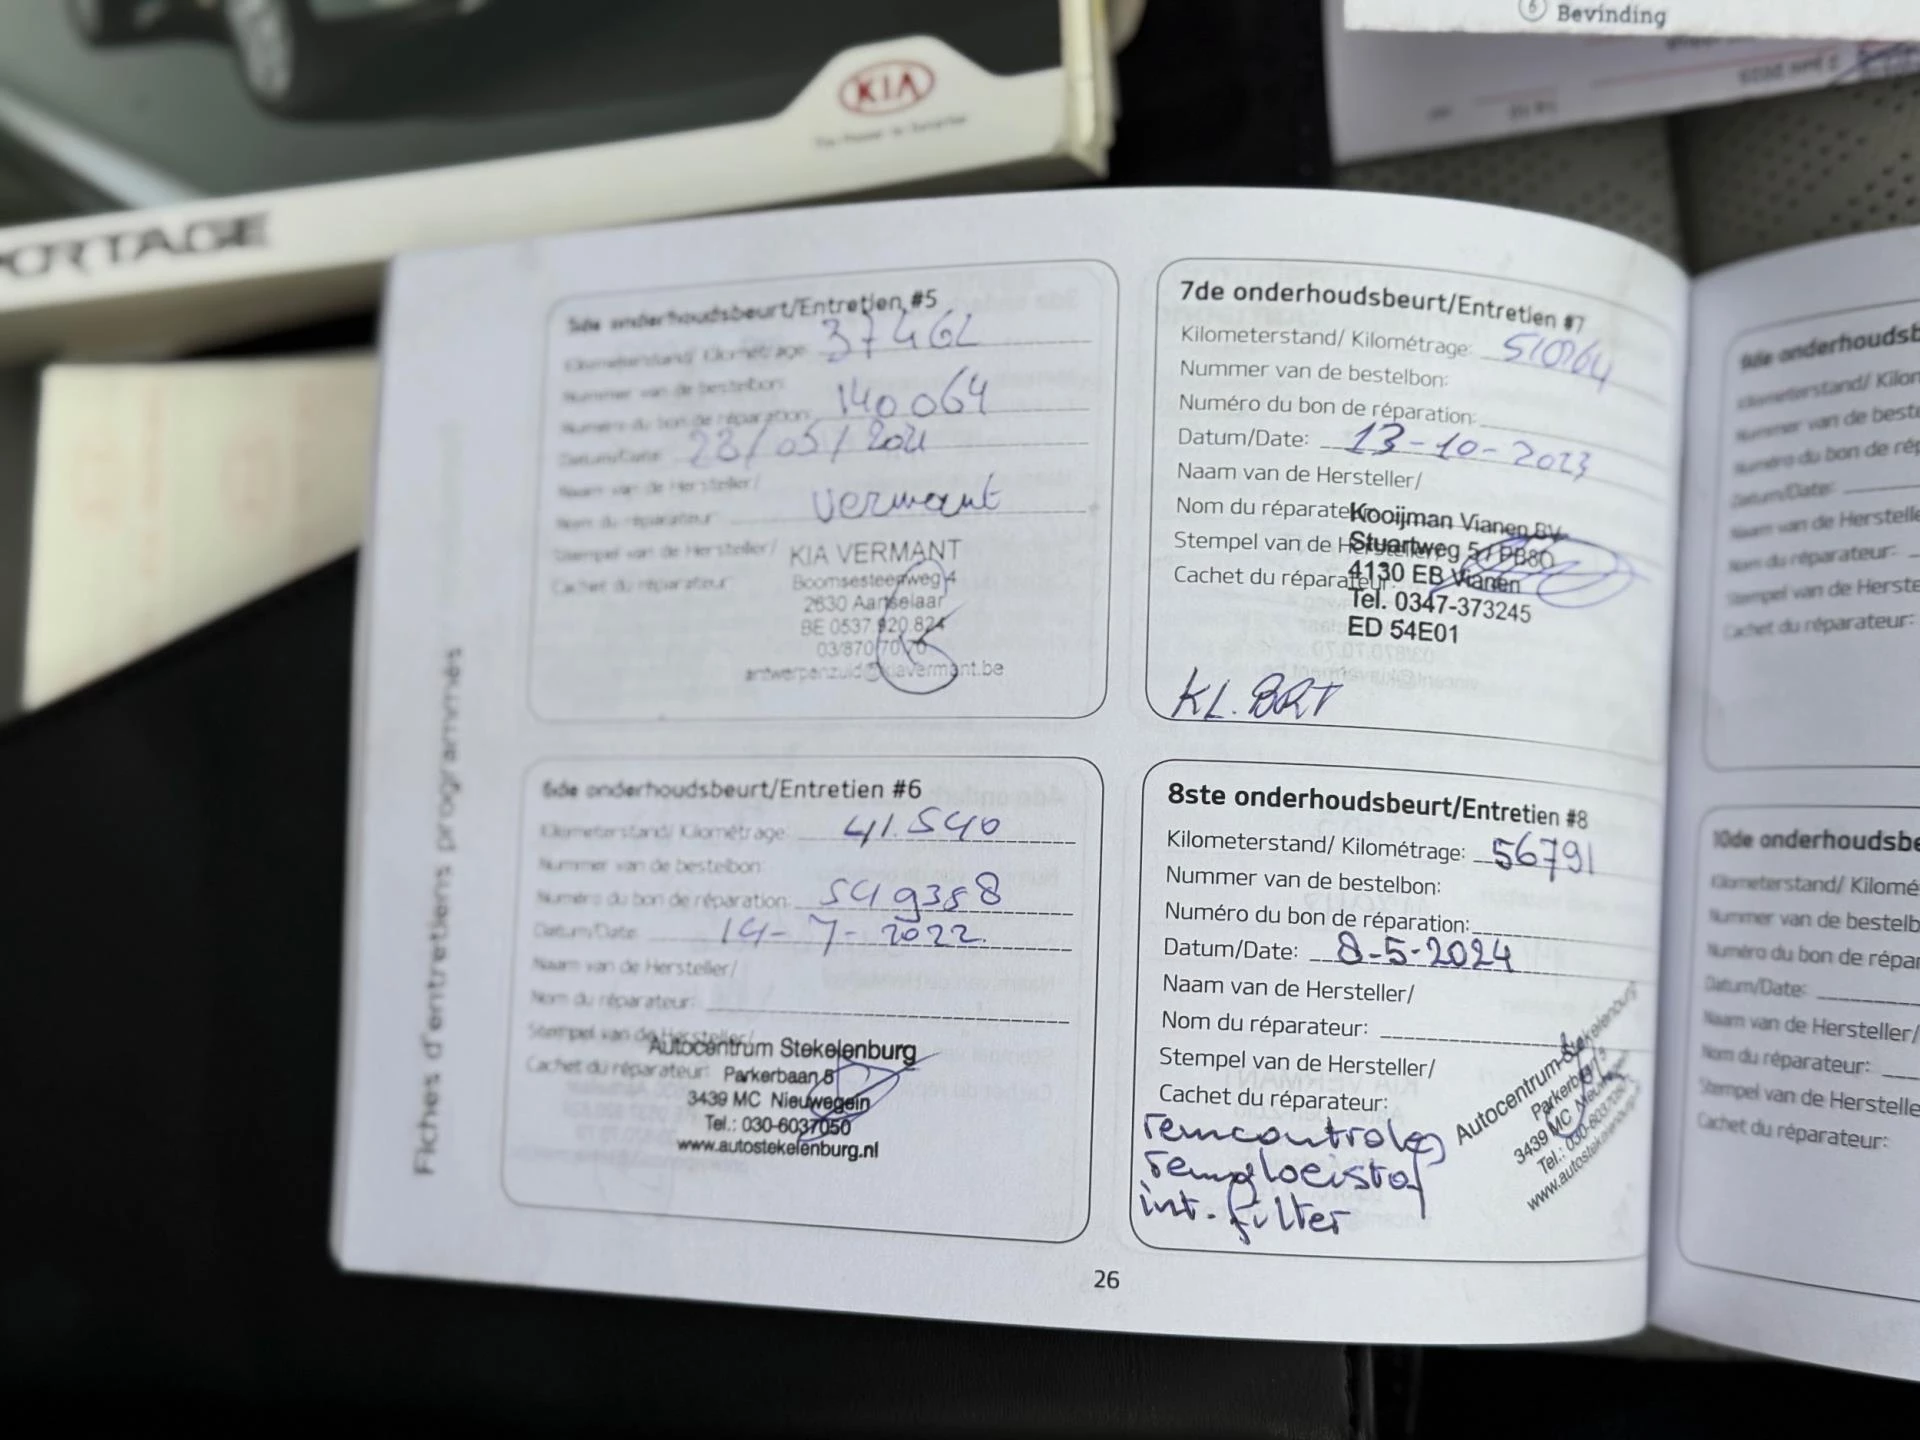 6 Bevinding
KIA
The Power to Surprise
PORTAGE
Fiches d'entretiens programmés
5de onderhoudsbeurt/Entretien #5
Kilometerstand/ Kilométrage: 37462
Nummer van de bestelbon:
Numéro du bon de réparation: 140064
Datum/Date: 28/05/2021
Naam van de Hersteller/
Nom du réparateur: Vermant
Stempel van de Hersteller/
Cachet du réparateur:
KIA VERMANT
Boomsesteenweg 4
2630 Aartselaar
BE 0537.920.824
03/870.70.70
antwerpenzuid@kiavermant.be
6de onderhoudsbeurt/Entretien #6
Kilometerstand/ Kilométrage: 41.540
Nummer van de bestelbon:
Numéro du bon de réparation: 549388
Datum/Date: 14-7-2022
Naam van de Hersteller/
Nom du réparateur:
Stempel van de Hersteller/
Cachet du réparateur:
Autocentrum Stekelenburg
Parkerbaan 8
3439 MC Nieuwegein
Tel.: 030-6037050
www.autostekelenburg.nl
7de onderhoudsbeurt/Entretien #7
Kilometerstand/ Kilométrage:
Nummer van de bestelbon:
Numéro du bon de réparation:
Datum/Date: 13-10-2023
Naam van de Hersteller/
Nom du réparateur:
Stempel van de Hersteller/
Cachet du réparateur:
Kooijman Vianen BV
Stuartweg 5 / PB80
4130 EB Vianen
Tel. 0347-373245
ED 54E01
KL. BRT
8ste onderhoudsbeurt/Entretien #8
Kilometerstand/ Kilométrage: 56791
Nummer van de bestelbon:
Numéro du bon de réparation:
Datum/Date: 8-5-2024
Naam van de Hersteller/
Nom du réparateur:
Stempel van de Hersteller/
Cachet du réparateur:
Autocentrum Stekelenburg
Parkerbaan 8
3439 MC Nieuwegein
Tel.: 030-6037050
www.autostekelenburg.nl
remcontrole
remvloeistof
int. filter
26
onderhoudsb
Kilometerstand/ Kilom
Nummer van de beste
Numéro du bon de rép
Datum/Date:
Naam van de Herstelle
Nom du réparateur:
Stempel van de Herste
Cachet du réparateur:
10de onderhoudsbe
Kilometerstand/ Kilomé
Nummer van de bestelb
Numéro du bon de répar
Datum/Date:
Naam van de Hersteller/
Nom du réparateur:
Stempel van de Hersteller
Cachet du réparateur: